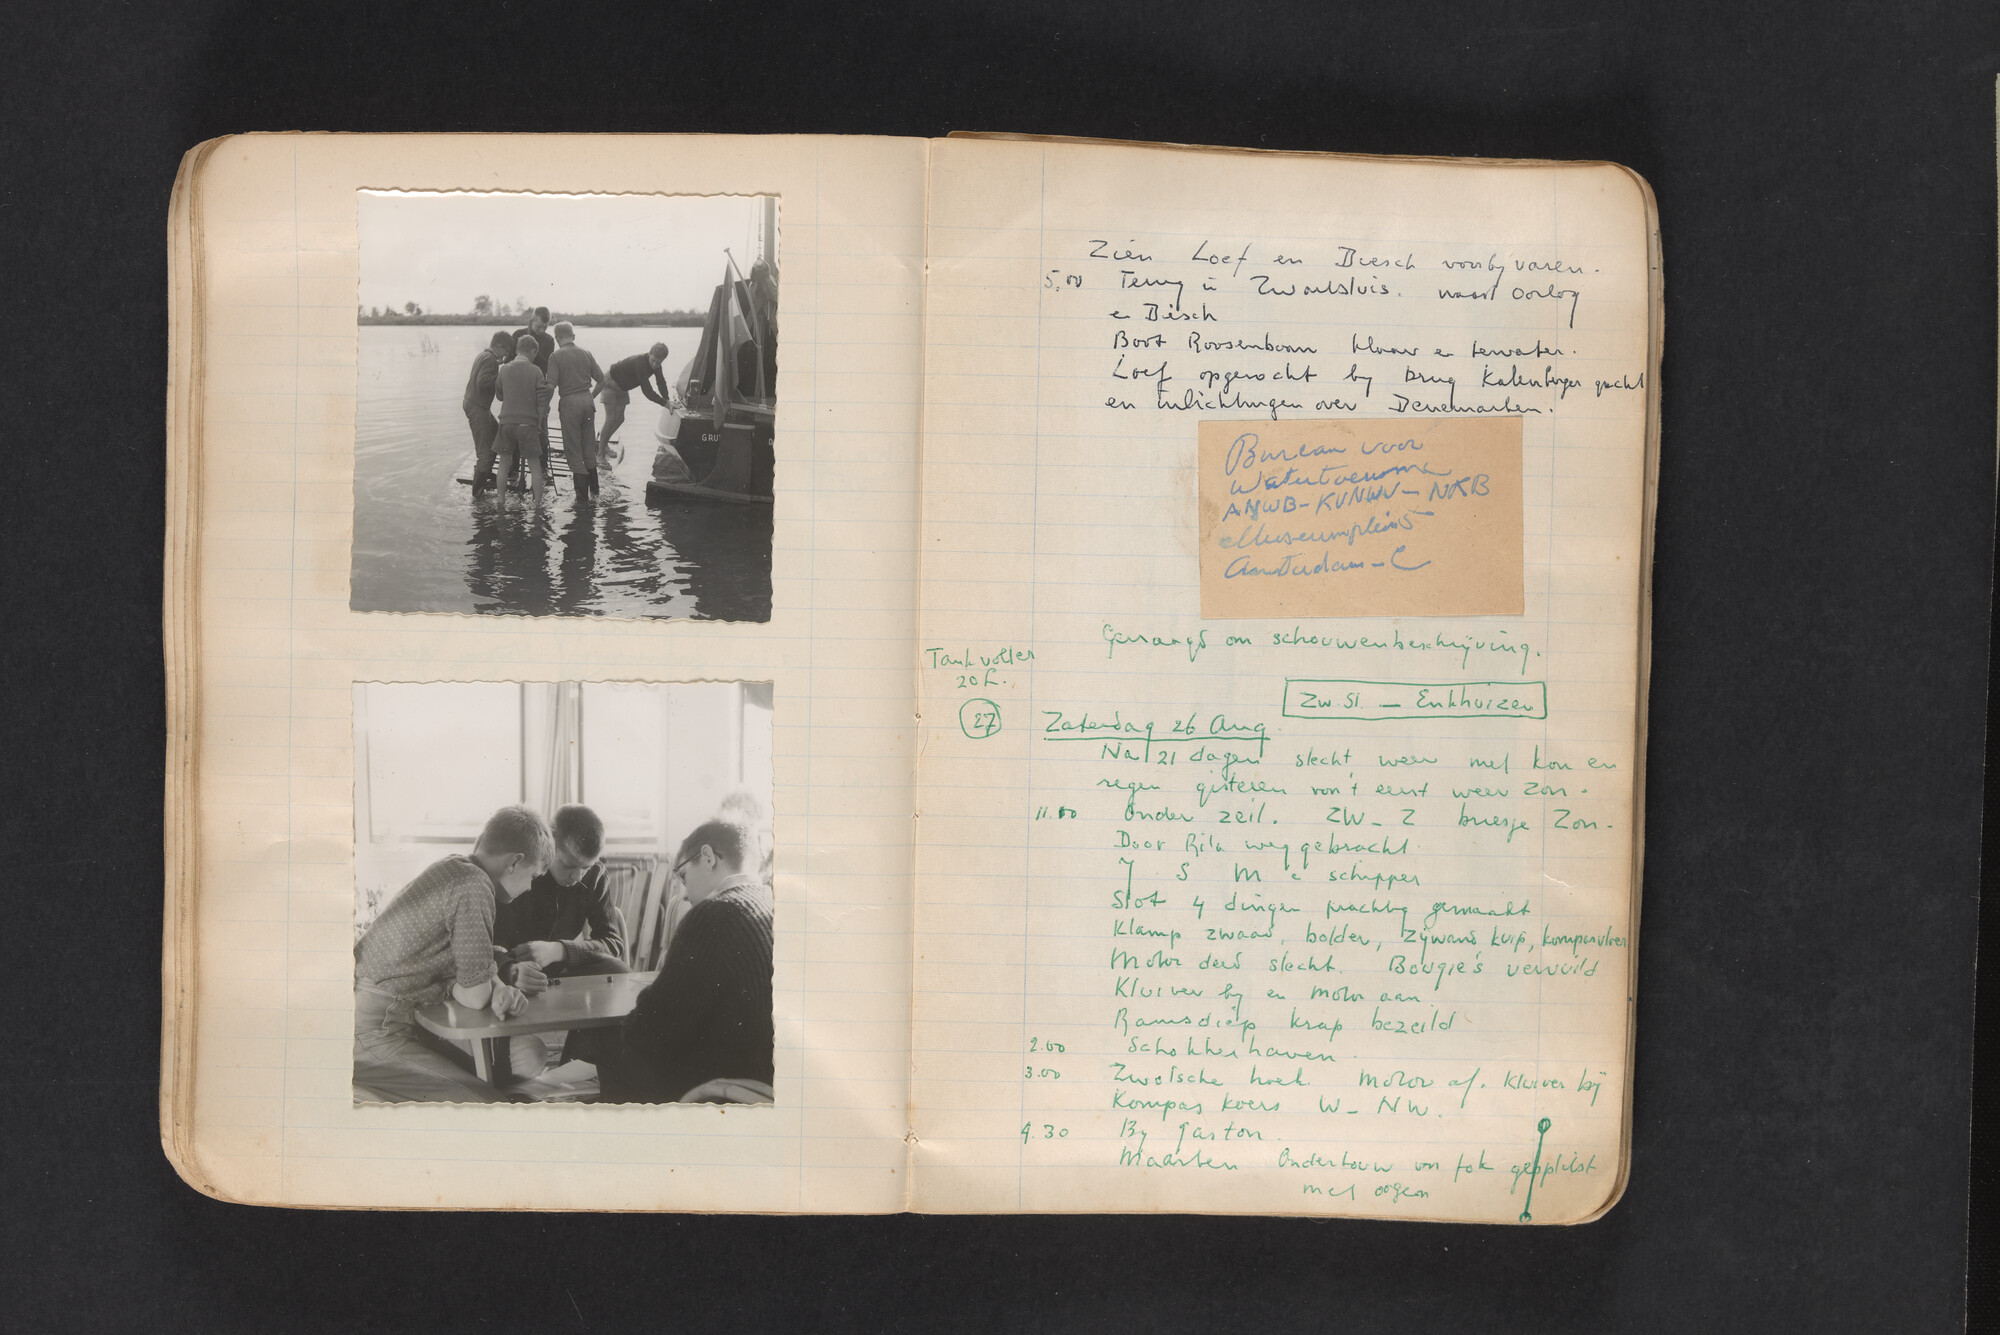 GRU
Zien Loef en Biesch voorbij varen.
5.00 Terug in Zwartsluis. naar Oorlog
en Biesch
Boot Roosenboom klaar en tewater.
Loef opgezocht bij brug Kalenberger gracht
en inlichtingen over Denemarken.
Bureau voor
Watertoerisme
ANWB-KVNWV-NKB
Museumplein 5
Amsterdam-C
Gevraagd om schouwenbeschrijving.
Tank voller
20 L.
Zw. Sl. — Enkhuizen
27 Zaterdag 26 Aug.
Na 21 dagen slecht weer met kou en
regen gisteren voor 't eerst weer zon.
11.00 Onder zeil. ZW-Z briesje Zon.
Door Rita weggebracht.
Y S M schipper
Slot 4 dingen prachtig gemaakt
Klamp zwaard, bolder, zijwand kuip, kompasvloer
Motor deed slecht. Bougie's vervuild
Kluiver bij en motor aan.
Ramsdiep krap bezeild
2.00 Schokkerhaven.
3.00 Zwolsche hoek. Motor af. Kluiver bij
Kompas koers W-NW.
4.30 By Gaston.
Maarten Onderbouw van fok gesplitst
met oogen